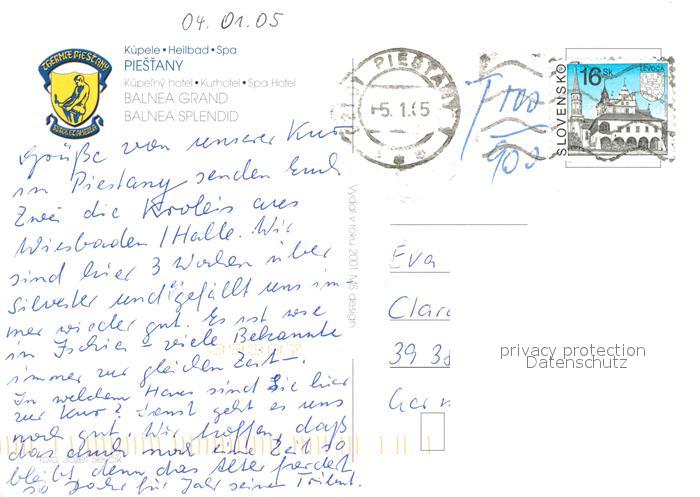 04.01.05
Kúpele • Heilbad • Spa
PIEŠŤANY
Kúpeľný hotel • Kurhotel • Spa Hotel
BALNEA GRAND
BALNEA SPLENDID
THERMIE PIEŠŤANY
PIEŠŤANY
-5.1.05
T 100
900
16 Sk
LEVOČA
SLOVENSKO
Grüße von unserer Kur
in Piestany senden Euch
Zwei die aus
Wiesbaden / Halle. Wir
sind hier 3 Wochen über
Silvester und es gefällt uns im
mer wieder gut. Es ist wie
in Ischia – viele Bekannte
immer zur gleichen Zeit –.
In welchem Haus sind Sie hier
zur Kur? Sonst geht es uns
noch gut. Wir hoffen, daß
das auch noch eine Zeit so
bleibt, denn das Alter fordert
so Jahr für Jahr seinen Tribut.
Vydal v roku 2001 MS design
Foto: Jozef Ševčík
Eva
Clar
39 38
Ger
privacy protection
Datenschutz